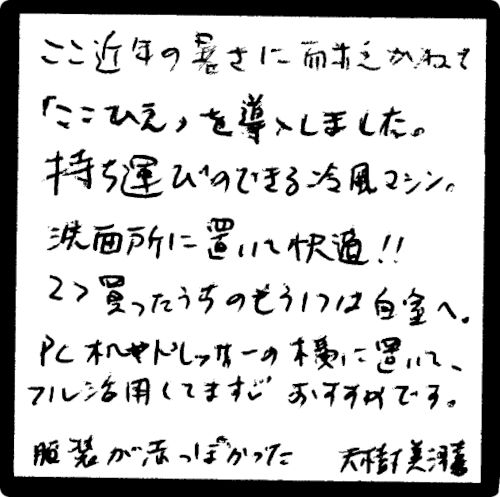 ここ近年の暑さに耐えかねて
「ここひえ」を導入しました。
持ち運びのできる冷風マシン。
洗面所に置いて快適!!
2つ買ったうちのもう1つは自室へ。
PC机やドレッサーの横に置いて、
フル活用してます おすすめです。
服装が赤っぽかった 天樹美